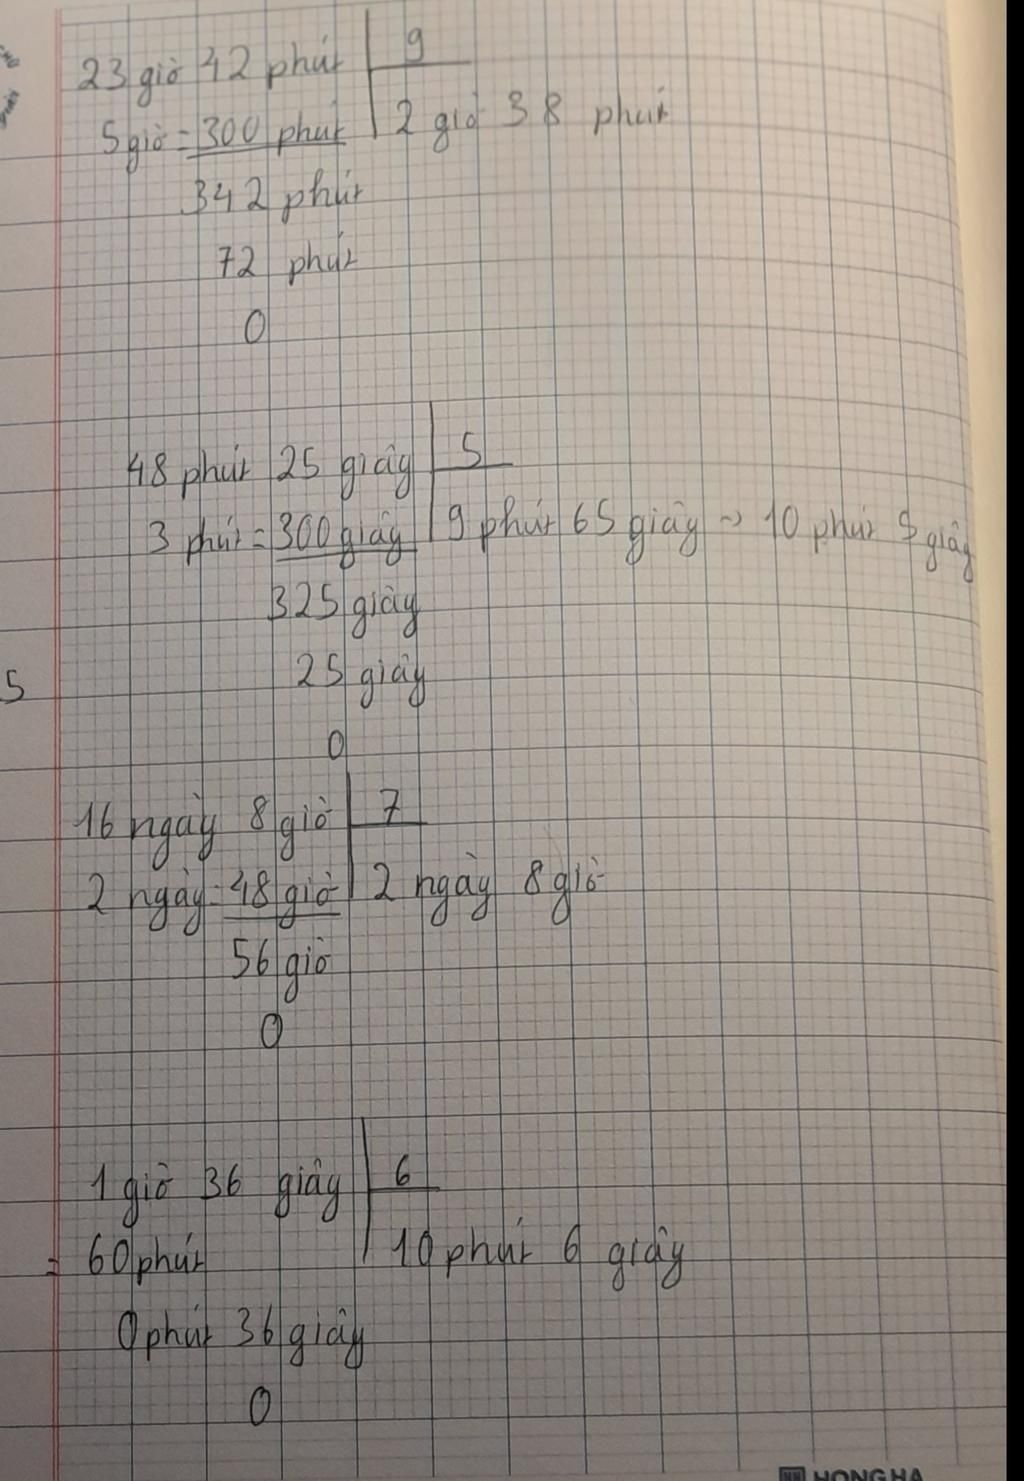 23 giờ 42 phút 9
5 giờ = 300 phút 2 giờ 38 phút
342 phút
72 phút
0
48 phút 25 giây 5
3 phút = 300 giây 9 phút 65 giây -> 10 phút 5 giây
325 giây
25 giây
0
5
16 ngày 8 giờ 7
2 ngày = 48 giờ 2 ngày 8 giờ
56 giờ
0
1 giờ 36 giây 6
= 60 phút 10 phút 6 giây
0 phút 36 giây
0
HONG HA